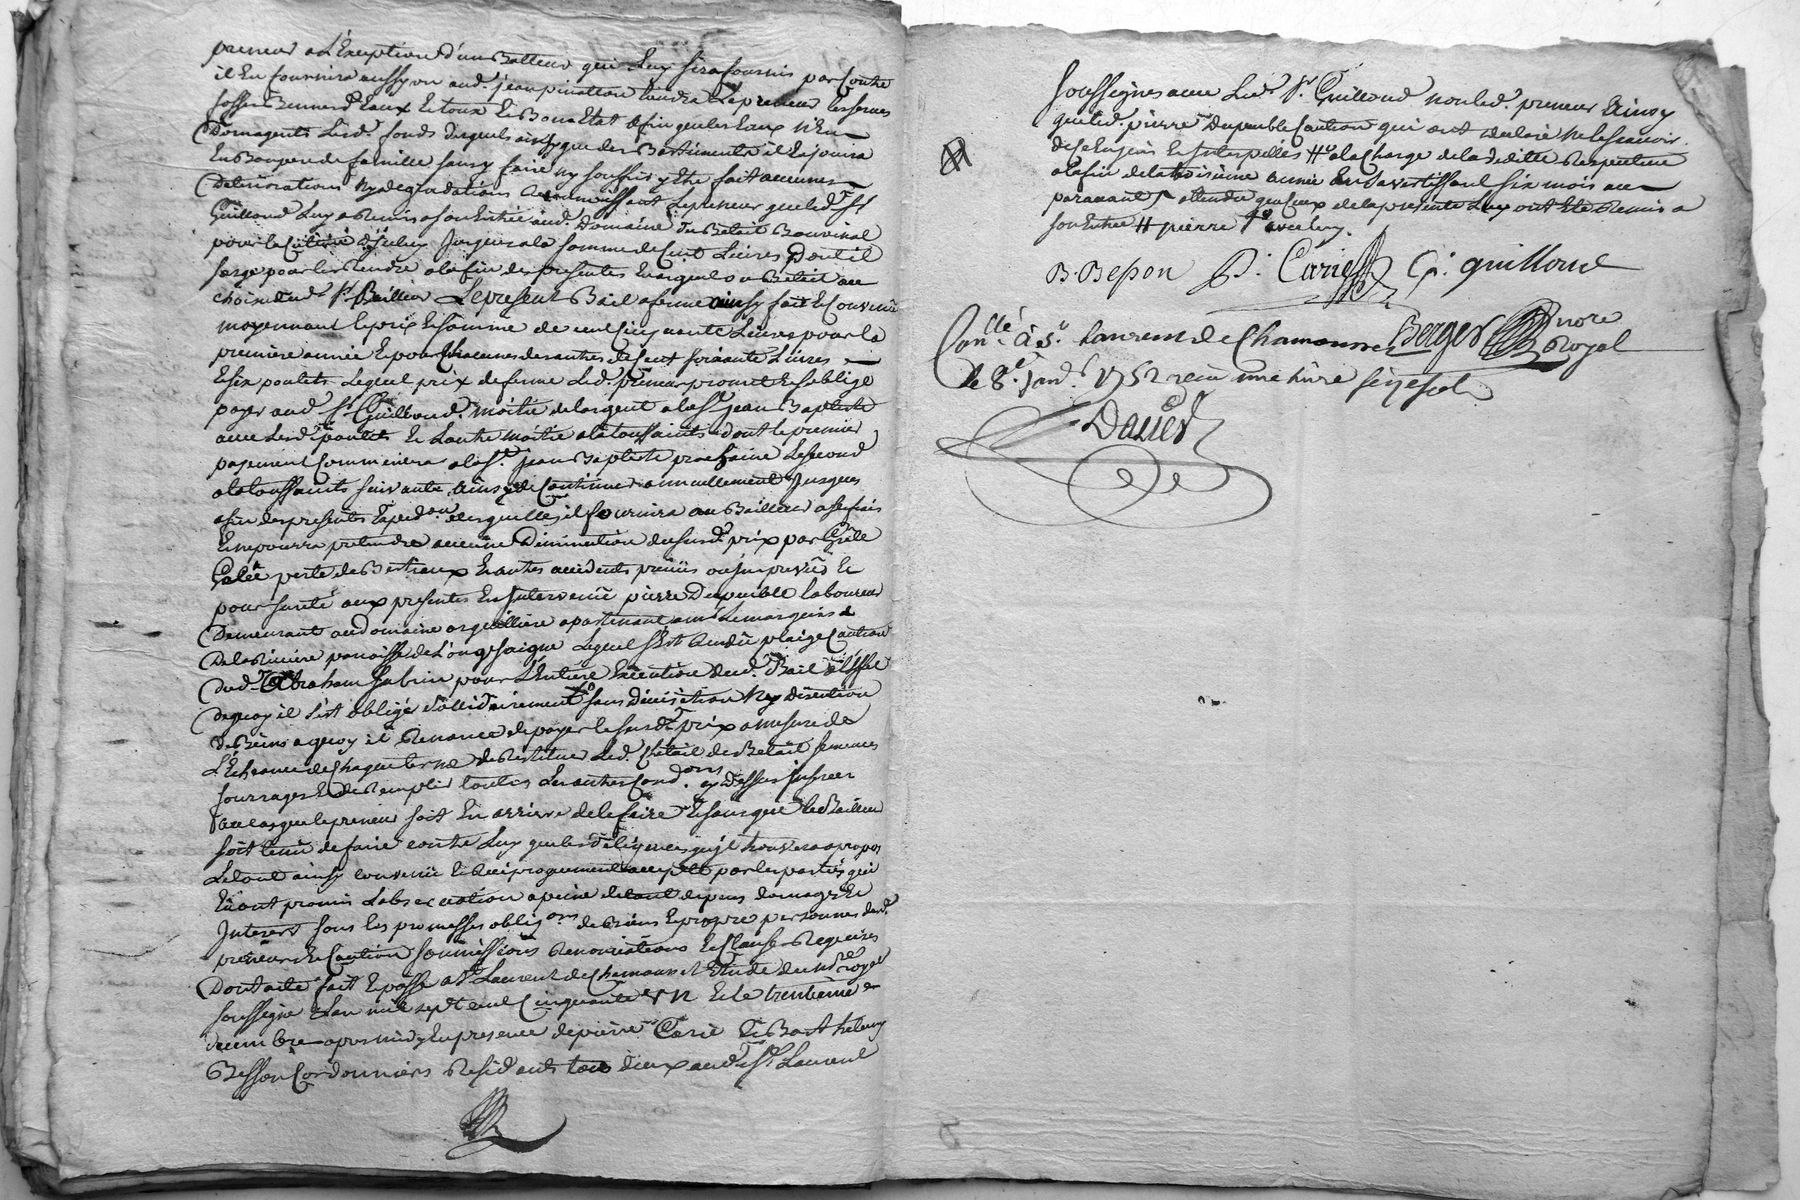 preneur a L'Exception d'un Batteur qui Luy sera fournis par Contre
il En fournira aussy un aud. jean pinatton tiendra Le preneur les terres
fossés Bernerd Eaux Le tout En Bon Etat afin que les Eaux N'En
Domagents Lesd. fonds Desquels aussy que des Bastiments il En jouira
En Bon pere de famille sans y faire ny souffrir y Etre fait aucunes
Deteriorations Ny degradations Reconnoissant Le preneur que led. Sr
Guilloud Luy a Remis a son Entrée aud. Domaine En Betail Bouvinal
pour la Culture d'Iceluy jusques a la somme de Cent Livres Dont il
Charge pour les Rendre a la fin des presentes En argent ou Betail au
choix dud. Sr. Bailleur Le present Bail a ferme ainsy fait Et Convenu
moyennant le prix Et somme de cent Cinquante Livres pour la
premiere année Et pour Chacunes des autres de Cent soixante Livres
Et six poulets Lequel prix de ferme Led. preneur promet Et s'oblige
payer aud. Sr. Guilloud. moitié de l'argent a la St. jean Baptiste
avec Lesd. poulets Et L'autre moitié a la toussaints dont le premier
payement Commencera a la St. jean Baptiste prochaine Le second
a la toussaints suivante Ainsy de Continuer annuellement jusques
a fin des presentes Exped.on desquelles il fournira au Bailleur a ses frais
Et ne pourra pretendre aucune Diminution du susd. prix par Grêle
Gelée perte de Bestiaux Et autres accidents prevûs ou jmprevûs Et
pour sureté aux presentes Est Intervenu pierre Dupuible laboureur
Demeurant au domaine arguilliere apartenant a Mr Le marquis de
De la Riviere parroisse de Longesaigne Lequel s'Est Rendu plaige Caution
Dud. Abraham Subrin pour L'Entiere Execution dud. Bail a l'Effet
De quoy il s'est obligé sollidairement sans Division Ny Discution
De Biens a quoy il Renonce de payer le susd. prix a mesure de
L'Echeance de Chaque terme de Restituer Led. Chetail de Betail semences
fourrages Et de Remplir toutes Les autres Cond.ons cy Dessus jnserees
au Cas que le preneur soit En arriere de le faire Et sans que le Bailleur
soit tenu de faire contre Luy que les Diligences qu'jl trouvera a propos
Le tout ainsy convenu Et Reciproquement accepté par les parties qui
En ont promis L'observation a peine de tout depens domages Et
Interest sous les promesses oblig.ons de Biens Et propre personnes desd.
preneur Et Caution soumissions Renonciations Et Clauses Requises
Dont acte fait Et passé a St. Laurent de Chamousset Etude du nore royal
soussigné L'an mil sept cent Cinquante Un Et le trentieme
decembre apres midy En presence de pierre Carie Et Barthelemy
Besson Cordonniers Residants tous deux aud. St. Laurent
soussignes avec Led. Sr. Guilloud non led. preneur Ainsy
que led. pierre Dupuible Caution qui ont declaré ne le scavoir
De ce Enquis Et Interpellés # a la Charge de la Deditte Respective
a la fin de la troisieme année En s'avertissant six mois au
paravant attendu que Ceux de la presente Luy ont Eté Remis a
son Entrée # pierre avec luy.
B. Besson P. Carie G. guilloud
Con.llé à St. Laurens de Chamousset Berger nore Royal
le 8e. janv. 1752 recu une livre seize sols
Dauier